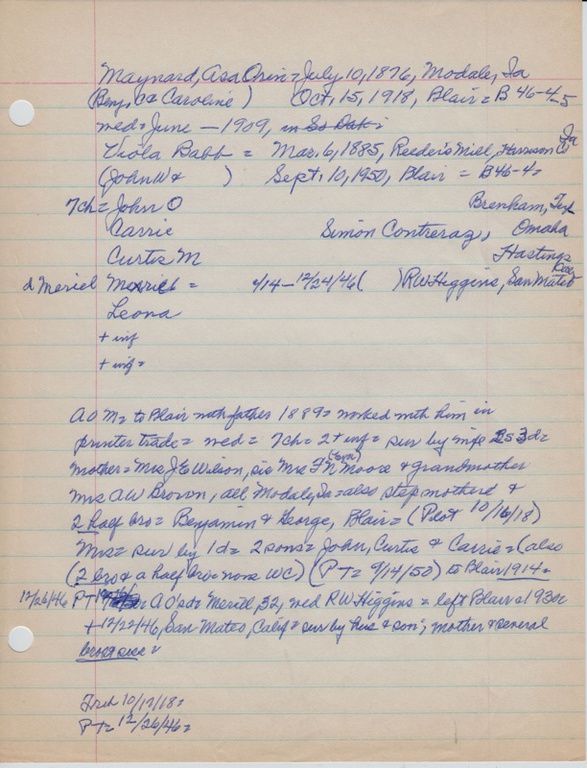 Maynard, Asa Orin = July 10, 1876, Modale, Ia
(Benj, C & Caroline) Oct, 15, 1918, Blair = B 46-4-5
wed = June — 1909, in So Dak =
Viola Babb = Mar. 6, 1885, Reeder's Mill, Harrison Co Ia
(John W & ) Sept. 10, 1950, Blair = B46-4=
7ch = John O Brenham, Tex
Carrie Simon Contreraz, Omaha
Curtis M Hastings
d Meriel = 4/14 - 12/24/46 ( ) RW Higgins, San Mateo
Leona
+ inf
+ inf =
A O M = to Blair with father 1889 = worked with him in
printer trade = wed = 7ch = 2 + inf = sur by wife 2s 3d =
mother = Mrs J E Wilson, sis Mrs F N Moore & grandmother
Mrs A W Brown, all Modale, Ia = also step mother &
2 half bro = Benjamin & George, Blair = (Pilot 10/16/18)
Mrs = sur by 1d = 2 sons = John, Curtis & Carrie = (also
(2 bro & a half bro = none WC) (PT = 9/14/50) to Blair 1914 =
12/26/46 PT = A O's d = Meriel, 32, wed RW Higgins = left Blair = 1930c
+ 12/22/46, San Mateo, Calif = sur by hus & son; mother & several
bro & sis =
10/17/18 =
PT = 12/26/46 =